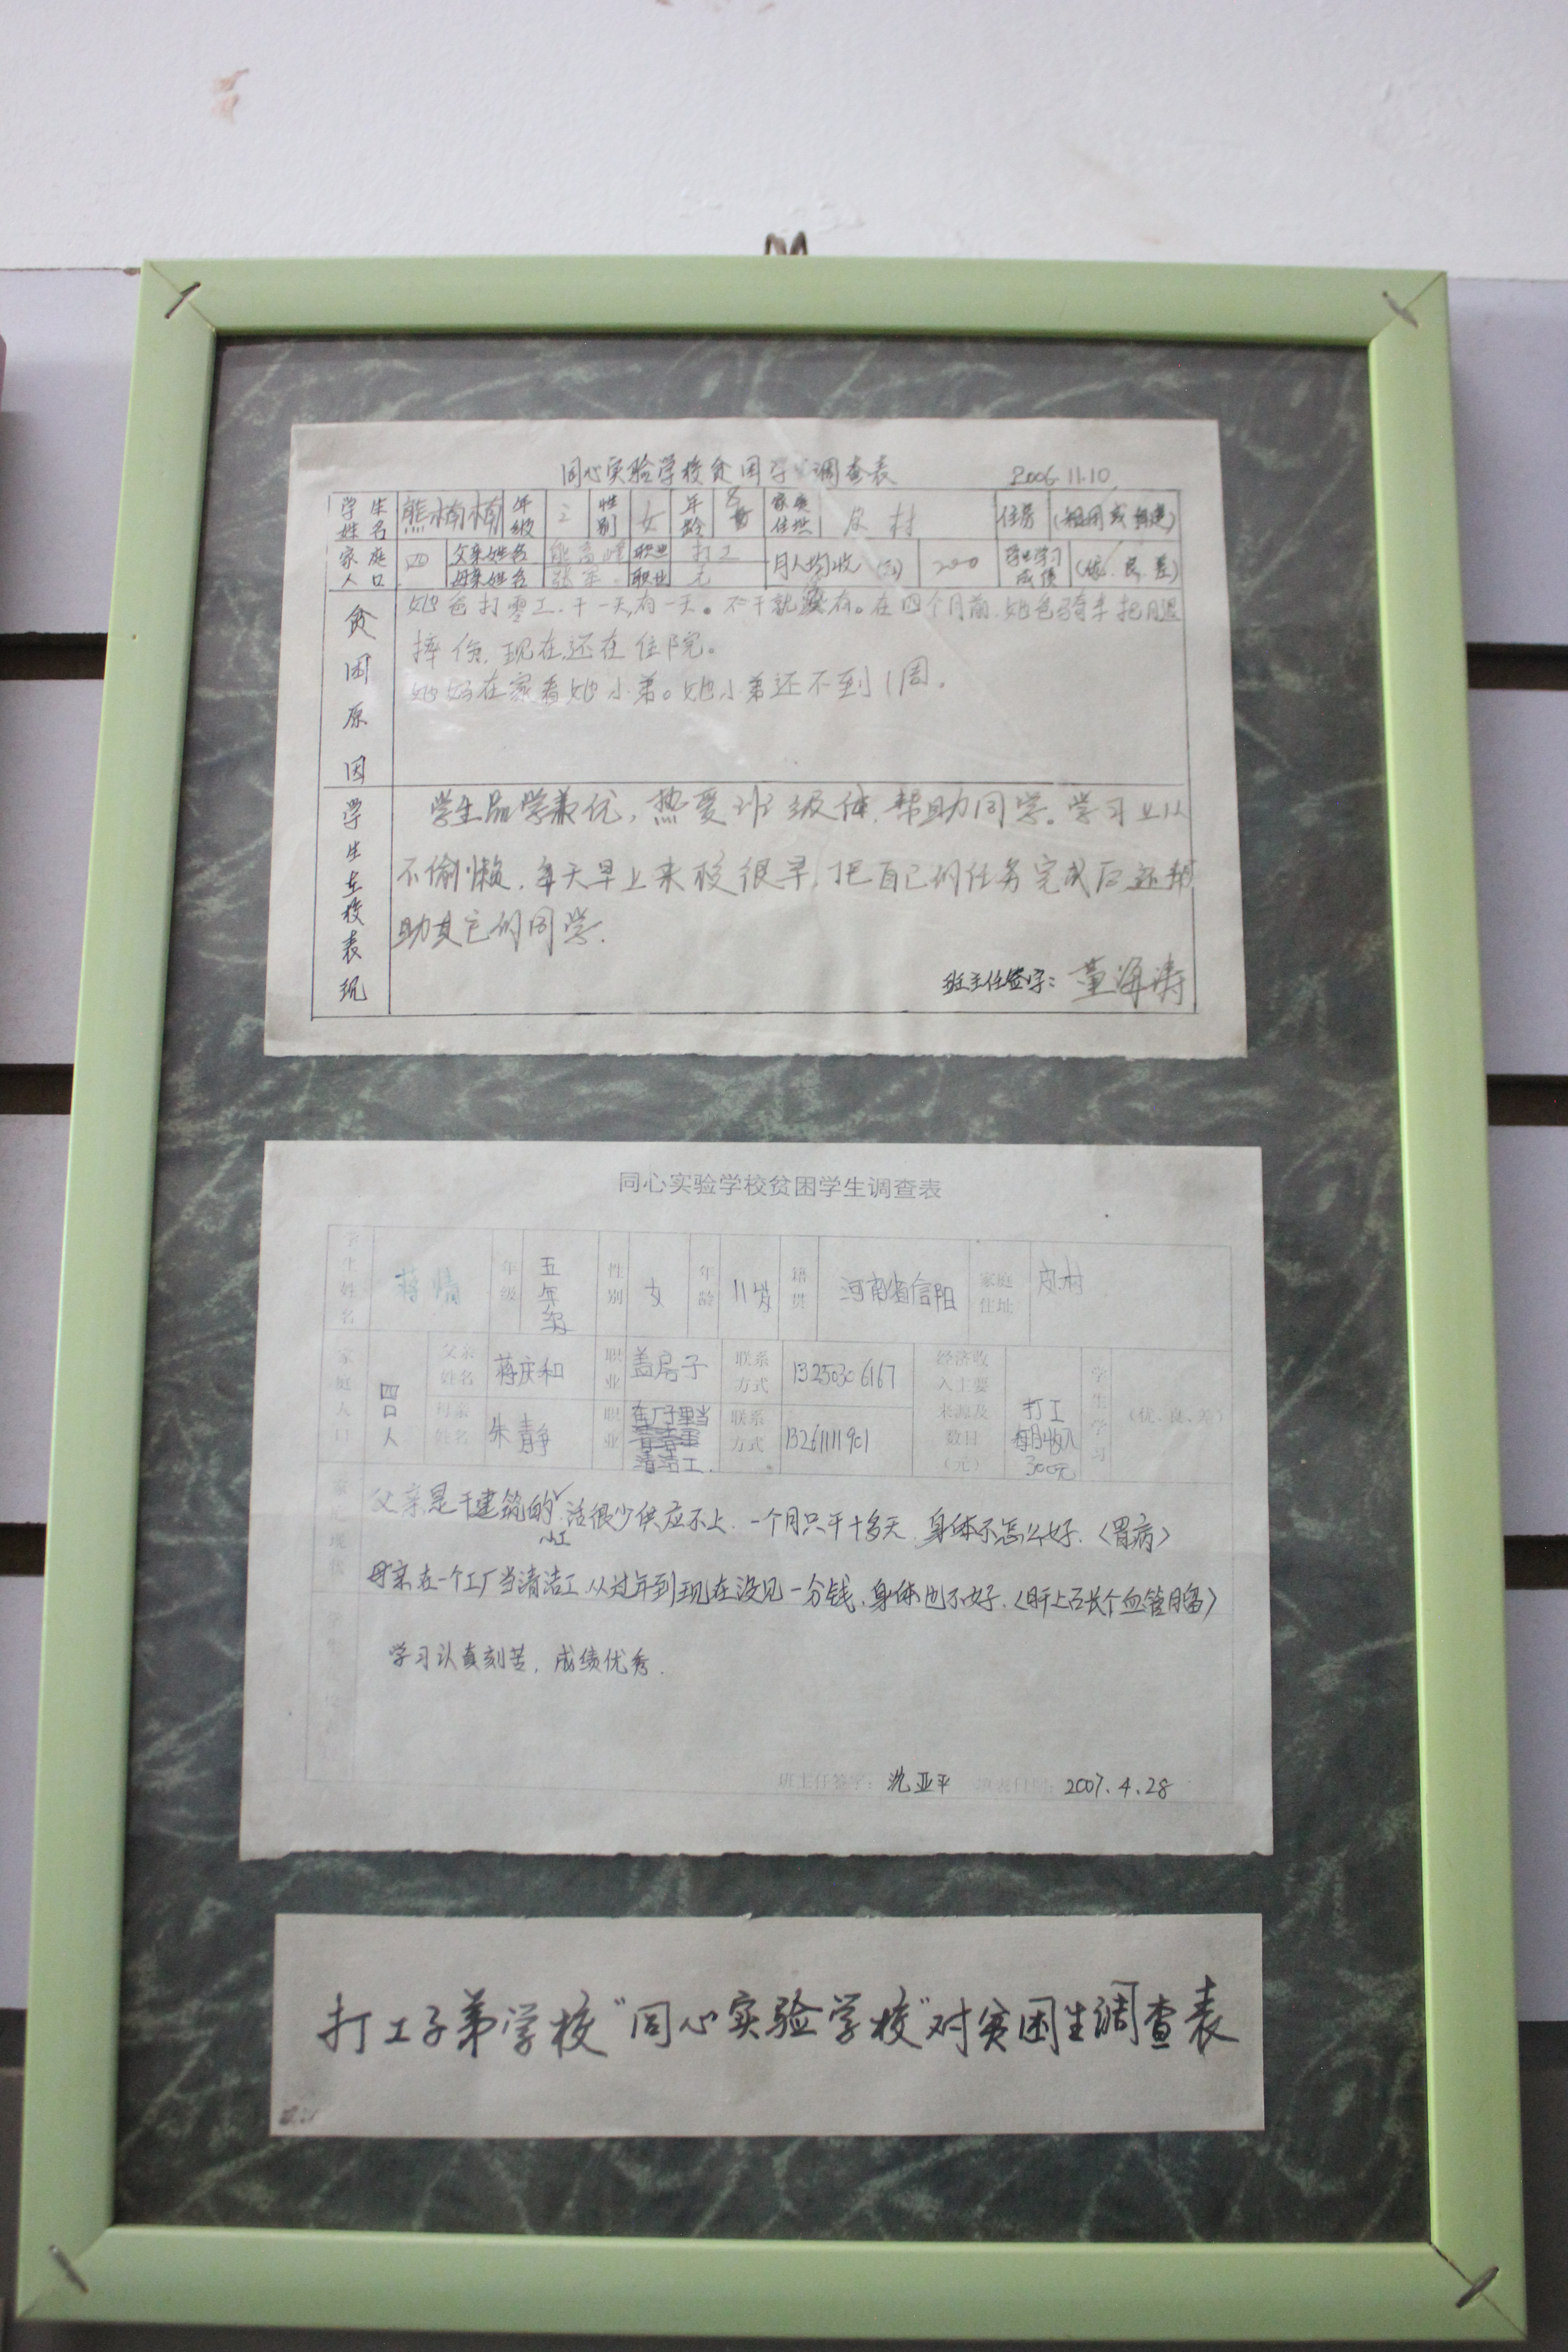 同心实验学校贫困学 调查表 2006.11.10
学生姓名 熊楠楠 年级 三 性别 女 年龄 8 家庭住址 皮村 住房 (租用或自建)
家庭人口 四 父亲姓名 熊高峰 职业 打工 月人均收 200 学生学习成绩 (优、良、差)
母亲姓名 张军 职业 无
贫困原因
她爸打零工.干一天有一天。不干就没有。在四个月前.她爸骑车把腿
摔伤.现在还在住院。
她妈在家看她小弟。她小弟还不到1周.
学生在校表现
学生品学兼优,热爱班级体.帮助同学。学习上从
不偷懒.每天早上来校很早.把自己的任务完成后还帮
助其它的同学.
班主任签字: 董海涛
同心实验学校贫困学生调查表
学生姓名 蒋倩 年级 五年级 性别 女 年龄 11岁 籍贯 河南省信阳 家庭住址 皮村
家庭人口 四口人 父亲姓名 蒋庆和 职业 盖房子 联系方式 13250306167 经济收入主要来源及数目(元) 打工每月收入300元 学生学习 (优、良、差)
母亲姓名 朱静 职业 在厂子里当清洁工. 联系方式 13261111901
父亲是干建筑的小工.活很少供应不上.一个月只干十多天.身体不怎么好.〈胃病〉
母亲在一个工厂当清洁工.从过年到现在没见一分钱.身体也不好.〈肝上长个血管瘤〉
学习认真刻苦,成绩优秀.
班主任签字: 沈亚平 填表日期: 2007.4.28
打工子弟学校"同心实验学校"对贫困生调查表